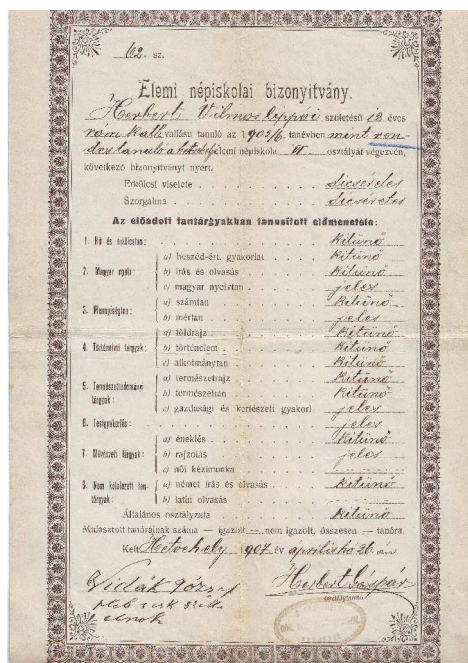 62. sz.
Elemi népiskolai bizonyítvány.
Herbert Vilmos cippói születésű 12 éves
róm. kath. vallásu tanuló az 1905/6 tanévben mint ren-
des tanuló a elemi népiskola VI osztályát végezvén,
következő bizonyitványt nyert.
Erkölcsi viselete . . . . Dicséretes
Szorgalma . . . . Dicséretes
Az előadott tantárgyakban tanusított előmenetele:
1. Hit és erkölcstan: . . . . kitünő
2. Magyar nyelv: a) beszéd-ért. gyakorlat . . . . kitünő
b) irás és olvasás . . . . kitünő
c) magyar nyelvtan . . . . jeles
3. Mennyiségtan: a) számtan . . . . kitünő
b) mértan . . . . jeles
4. Történelmi tárgyak: a) földrajz . . . . kitünő
b) történelem . . . . kitünő
c) alkotmánytan . . . . kitünő
5. Természettudományi tárgyak: a) természetrajz . . . . kitünő
b) természettan . . . . kitünő
c) gazdasági és kertészeti gyakorl . . . . jeles
6. Testgyakorlás: . . . . jeles
7. Művészeti tárgyak: a) éneklés . . . . kitünő
b) rajzolás . . . . jeles
c) női kézimunka . . . .
8. Nem kötelezett tantárgyak: a) német irás és olvasás . . . . kitünő
b) latin olvasás . . . .
Általános osztályzata . . . . kitünő
Mulasztott tanórájnak száma — igazolt — nem igazolt, összesen — tanóra.
Kelt Hetvehely 1907 év április hó 26-án
Vidák József
Herbert Gáspár
pleb.
elnök
osztálytanitó